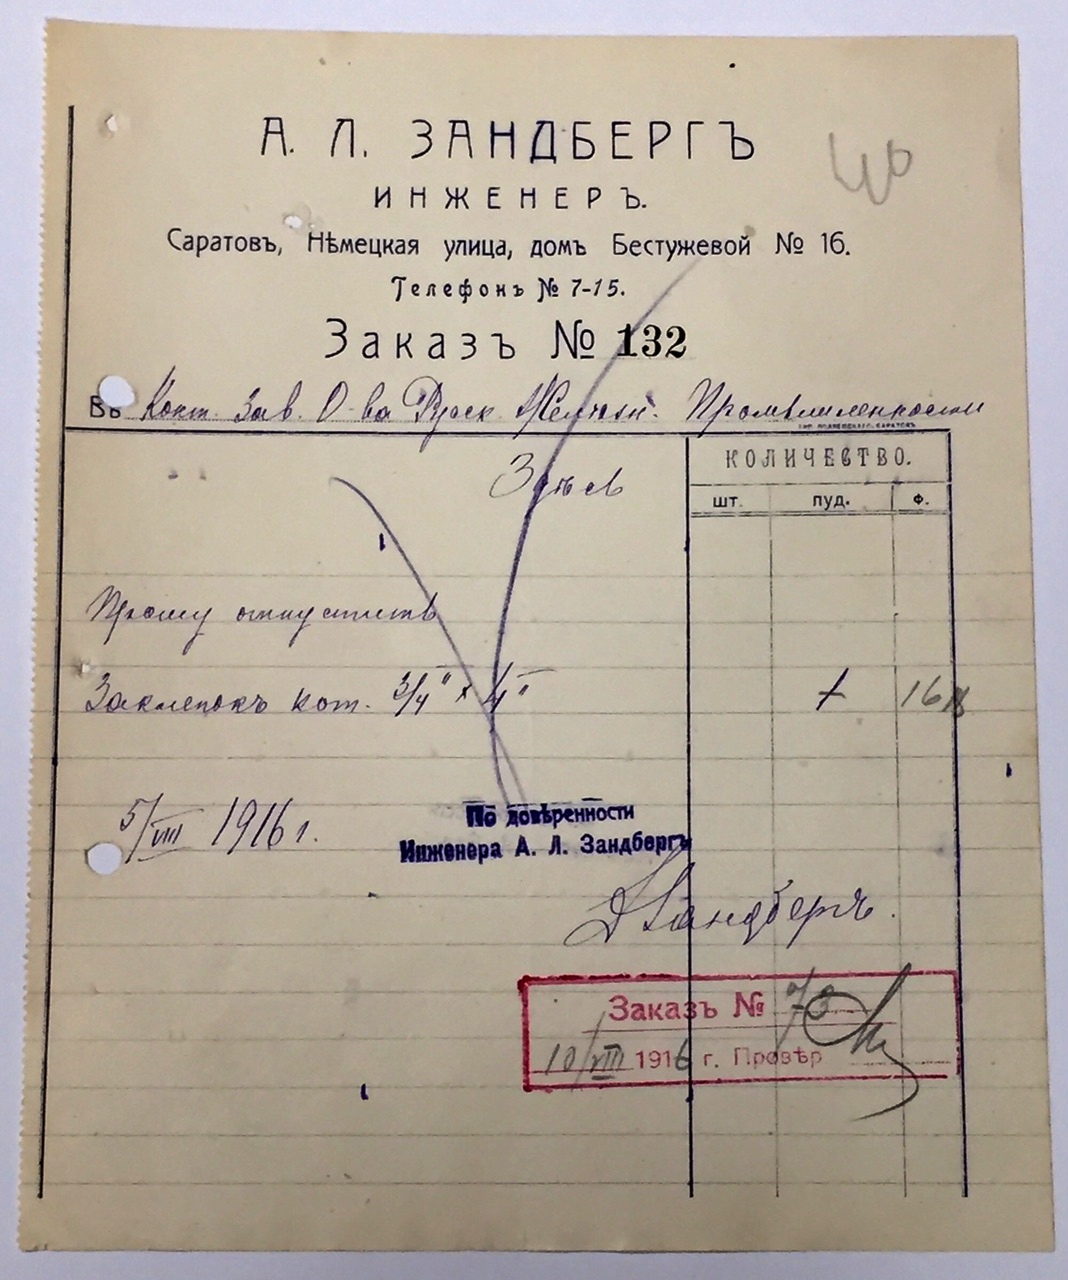 А. Л. ЗАНДБЕРГЪ
ИНЖЕНЕРЪ.
Саратовъ, Нѣмецкая улица, домъ Бестужевой № 16.
Телефонъ № 7-15.
Заказъ № 132
Въ Конт. Зав. О-ва Русск. Желѣзн. Промышленности
Здѣсь
КОЛИЧЕСТВО.
шт. пуд. Ф.
Прошу отпустить
Заклепокъ кот. 3/4" х 4" 16
5/VIII 1916 г.
По довѣренности
Инженера А. Л. Зандбергъ
Зандбергъ.
Заказъ №
10/VIII 1916 г. Провѣр